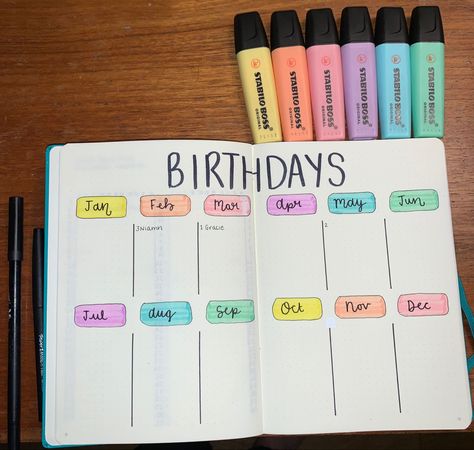 STABILO BOSS ORIGINAL
STABILO BOSS ORIGINAL
STABILO BOSS ORIGINAL
STABILO BOSS ORIGINAL
STABILO BOSS ORIGINAL
STABILO BOSS ORIGINAL
BIRTHDAYS
Jan Feb Mar Apr May Jun
3 Niamh 1 Gracie 2
Jul Aug Sep Oct Nov Dec